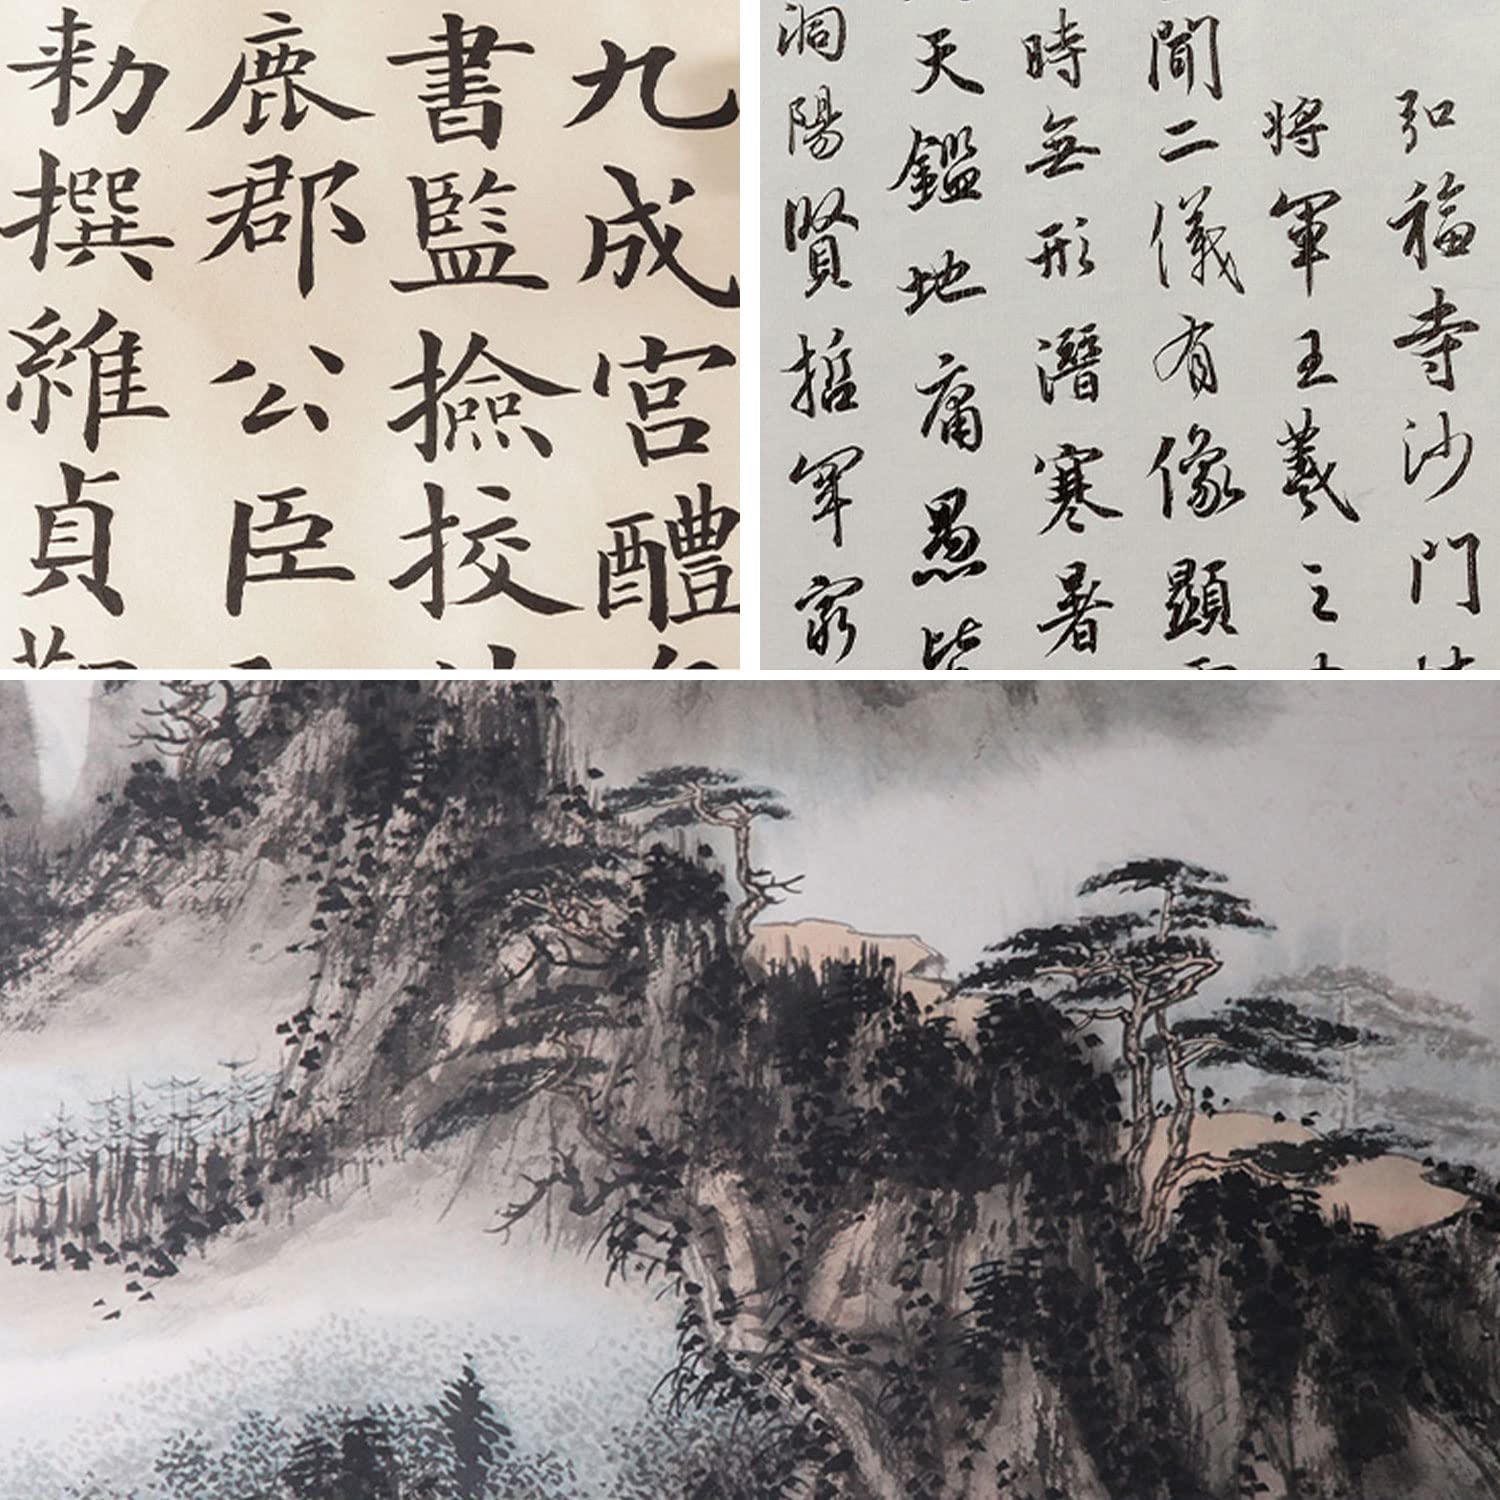 九成宮醴
書監撿挍
鹿郡公臣
勑撰維貞
弘福寺沙門
將軍王羲之
聞二儀有像顯
時無形潛寒暑
天鑑地庸愚皆
洞陽賢哲罕窮